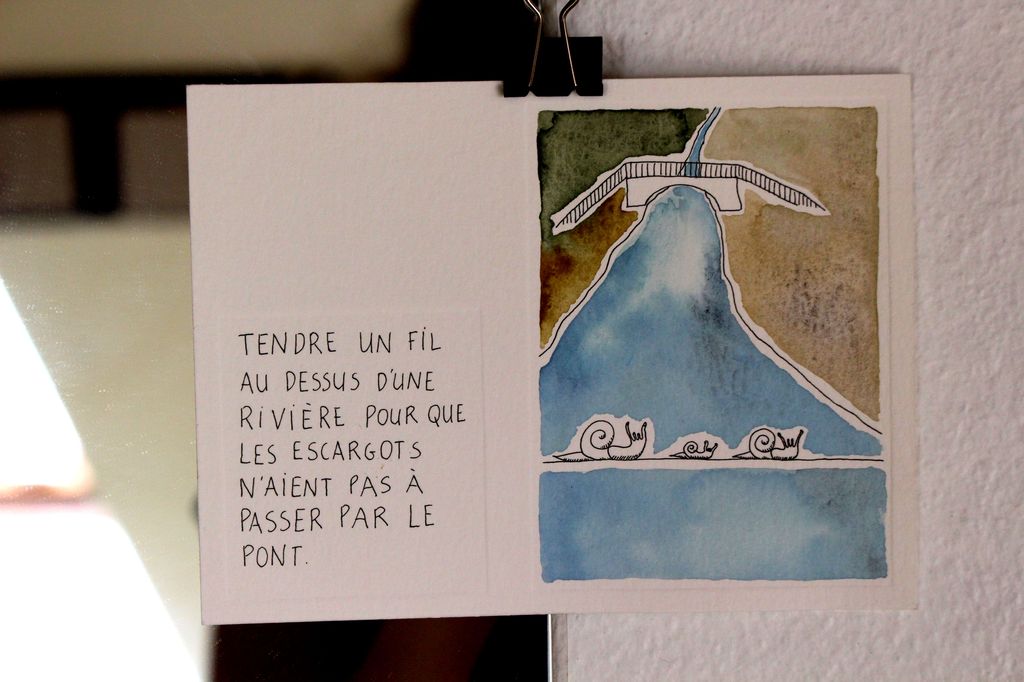 TENDRE UN FIL
AU DESSUS D'UNE
RIVIÈRE POUR QUE
LES ESCARGOTS
N'AIENT PAS À
PASSER PAR LE
PONT.